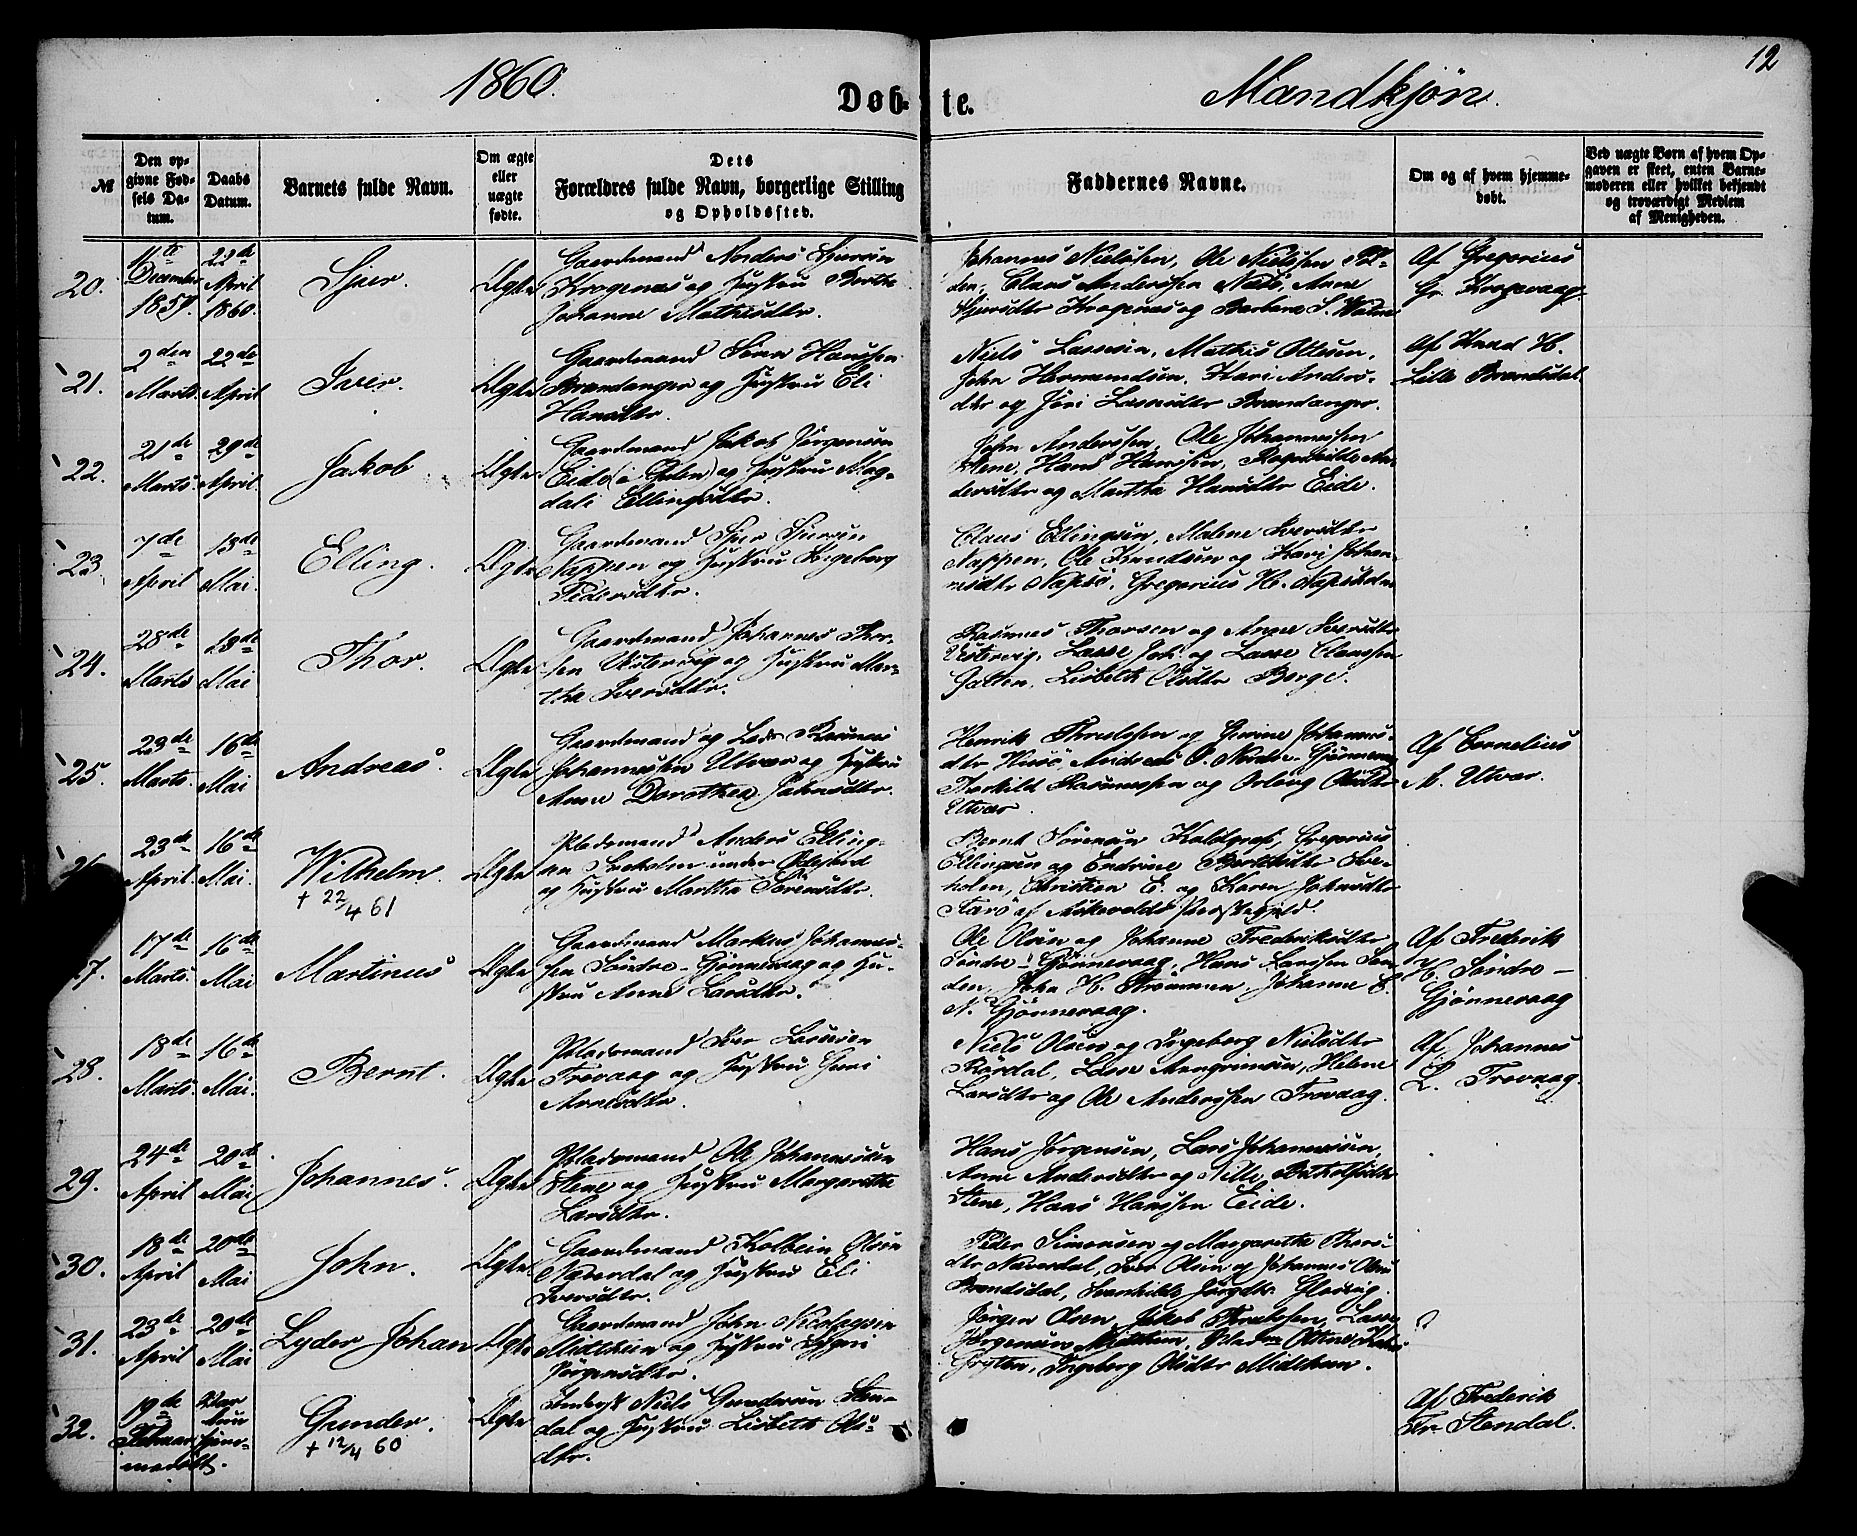 12
1860.
Døb-
te.
Mandkjøn.
№
Den op-
givne Fød-
sels Da-
tum.
Daabs
Datum.
Barnets fulde Navn.
Om ægte
eller
uægte
fødte.
Dets
Forældres fulde Navn, borgerlige Stilling
og Opholdssted.
Faddernes Navne.
Om og af hvem hjemme-
døbt.
Ved uægte Børn af hvem Op-
gaven er skeet, enten Barne-
moderen eller hvilket bekjendt
og troværdigt Medlem
af Menigheden.
20.
11te
December
1859.
22de
April
1860.
Sjur.
Ægte
Gaardmand Anders Sjursen
Krogenæs og Hustru Berthe
Johanne Mathisdtr.
Johannes Nielssen, Ole Nielssen
Claus Anderssen Næss, Anne
Sjursdtr Krogenæs og Barbara S.
Af Gregorius
Gr. Krogevaag
21.
2den
Marts.
22de
April
Iver.
Ægte
Gaardmand Hanssen
Brandanger og Hustru Eli
Hansdtr.
Niels Lassesen, Mathis Ottesen,
John Hermundsen, Kari Anders-
dtr og Lassesdtr Brandanger.
Af Knud H.
Lille Brandsdal
22.
21de
Marts.
29de
April.
Jakob
Ægte
Gaardmand Jakob Jørgensen
Eide (i Gulen) og Hustru Mag-
dali Ellingsdtr.
John Anderssen, Ole Johannessen
Stene, Hans Hanssen, Ragnhilde An-
dersdtr og Martha Hansdtr Eide.
23.
7de
April
13de
Mai.
Elling.
Ægte
Gaardmand Sjur Sjursen
Nappen og Hustru Ingeborg
Pedersdtr.
Claus Ellingsen, Malene Iversdtr
Nappen, Ole Knudsen og Kari Johan-
nesdtr Gregorius H.
24.
28de
Marts
13de
Mai
Thor.
Ægte
Gaardmand Johannes Thor-
sen og Hustru Mar-
tha Iversdtr.
Rasmus Thorsen og Anne Iversdtr
Lasse Joh. og Lasse Clausen
Lisbeth Olsdtr Berge.
25.
23de
Marts.
16de
Mai
Andreas.
Ægte
Gaardmand og Lods Rasmus
Johannessen Utvær og Hustru
Anne Dorothea Johnsdtr.
Henrik og Johannes-
dtr Husø, Andreas O. Nordre-Gjønnevaag,
Thorkild Rasmussen og Olsdtr
Utvær.
Af Cornelius
A. Utvær.
26.
23de
April
16de
Mai.
Wilhelm.
+ 22/4 61
Ægte
Pladsmand Anders Elling-
sen under
og Hustru Martha Sørensdtr.
Bernt Sørensen Gregorius
Ellingsen og Endrine
holm, Christian E. og Karen Johnsdtr
af Askevolds Præstegjeld.
27.
17de
Marts.
16de
Mai
Martinus
Ægte
Gaardmand Markus Johannes-
sen Søndre-Gjønnevaag og Hu-
stru Anne Larsdtr.
Ole Olsen og Johanne Frederiksdtr
Søndre-Gjønnevaag, Hans Larssen
John H. Johanne E.
N. Gjønnevaag.
Af Frederik
H. Søndre-
Gjønnevaag
28.
18de
Marts.
16de
Mai.
Bernt.
Ægte
Pladsmand Iver Lassesen
Trovaag og Hustru Guri
Arnesdtr.
Niels Olsen og Ingeborg Nielsdtr
Lasse Helene
Larsdtr og Ole Anderssen Trovaag.
Af Johannes
L. Trovaag.
29.
24de
April
20de
Mai
Johannes.
Ægte
Pladsmand Ole Johannessen
Stene og Hustru Margarethe
Larsdtr.
Hans Jørgensen, Lars Johannessen,
Anne Andersdtr og Nille
Stene, Hans Hanssen Eide.
30.
18de
April
20de
Mai
John.
Ægte
Gaardmand Kolbein Olsen
og Hustru Eli
Iversdtr.
Peder Simonsen og Margarethe Thors-
dtr Iver Olsen og Johannes Olsen
Brandsdal,
31.
23de
April
20de
Mai
Lyder Johan
Ægte
Gaardmand John Nicolaysen
Midtthun og Hustru Sygni
Jørgensdtr.
Jørgen Olsen, Jakob Lasse
Jørgensen Midtthun,
Ingeborg Olsdtr Midtthun.
?
32.
19de
Februar
hjem-
medøbt.
Gunder.
+ 12/4 60
Ægte
Inderst Niels Gundersen Sten-
dal og Hustru Lisbeth Ols-
dtr.
Af Frederik
Fr. Stendal.